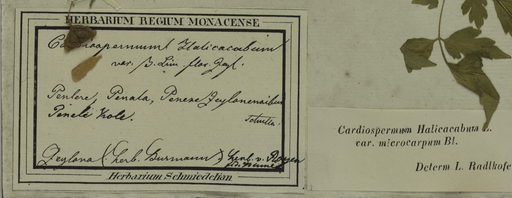 HERBARIUM REGIUM MONACENSE
Cardiospermum Halicacabum
var. β. Lin. flor. Zeyl.
Penlere, Penala, Penere Zeylonensibus
Penele Kole.
Zeylona (herb. Burmann) herb. v. Royen
Herbarium Schmiedelian
Cardiospermum Halicacabum L.
var. microcarpum Bl.
Determ L. Radlkofe